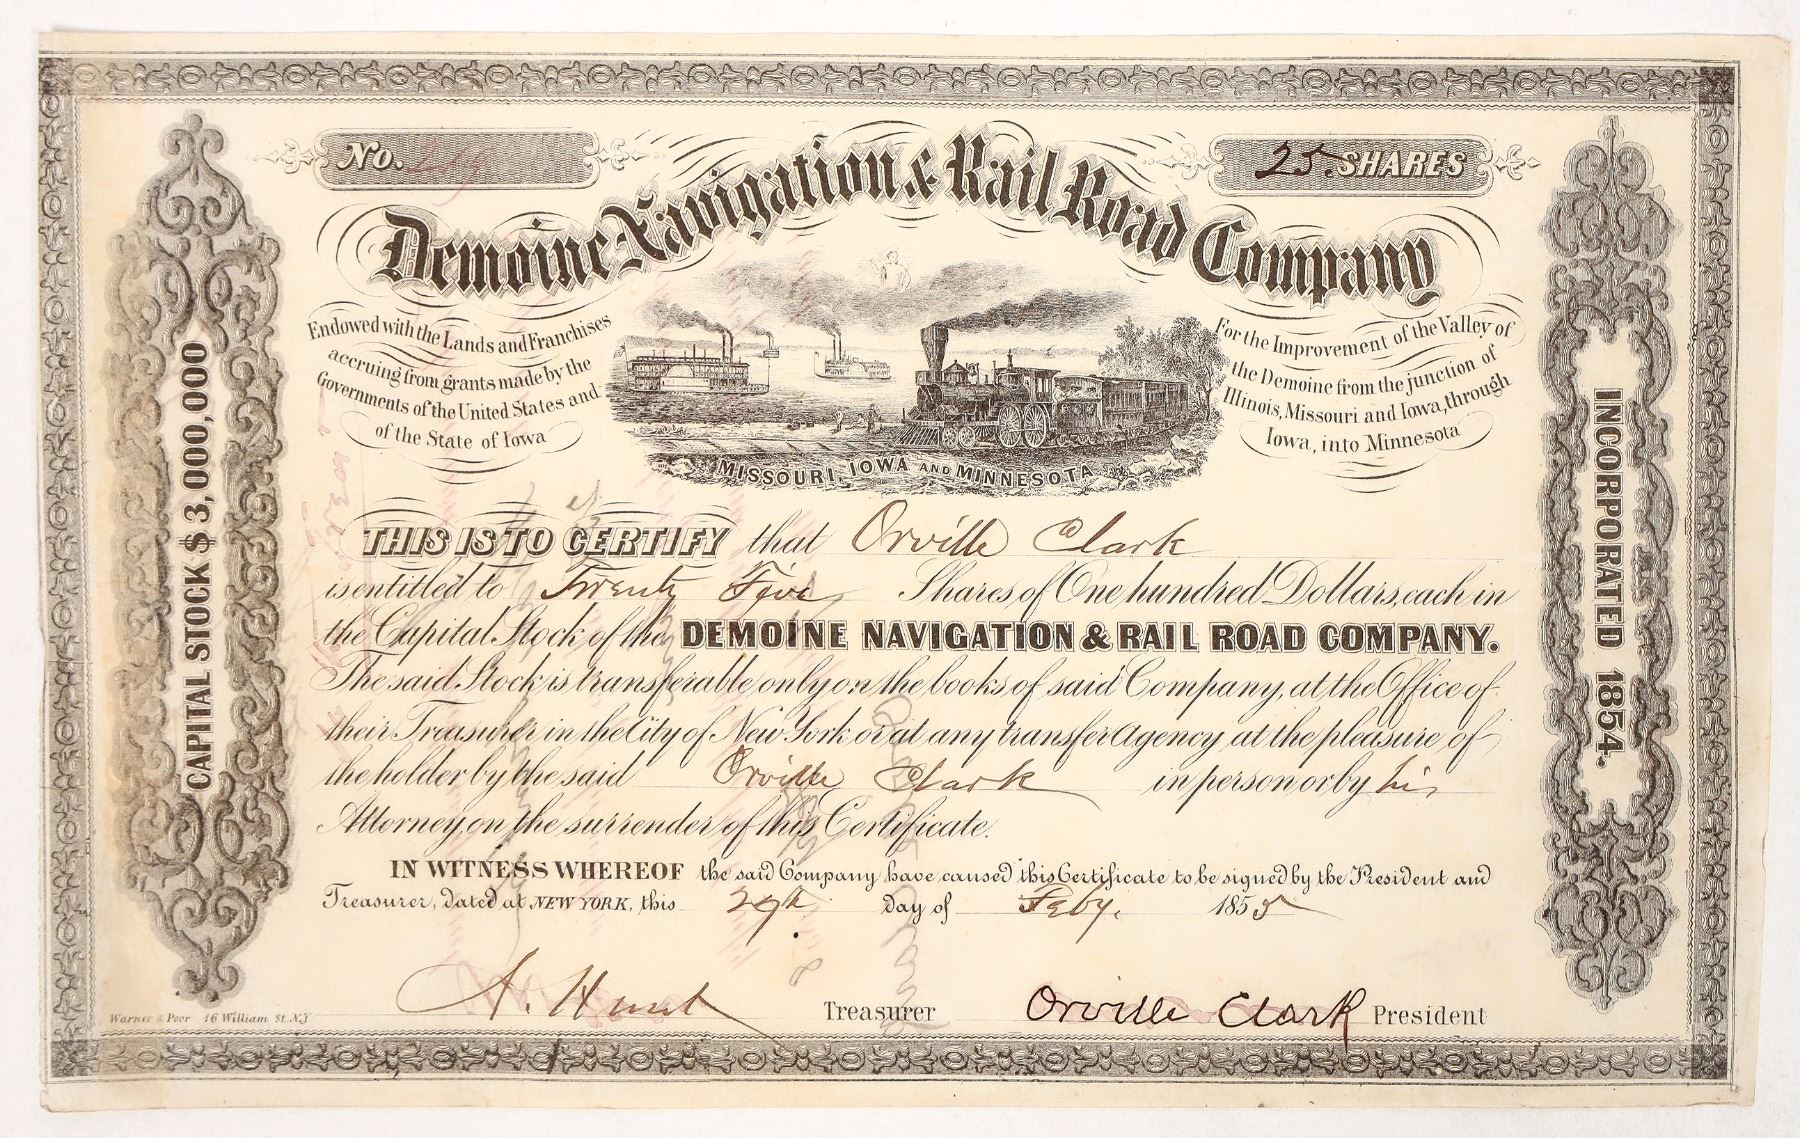 No. 249
25. SHARES
Demoine Navigation & Rail Road Company
Endowed with the Lands and Franchises
accruing from grants made by the
Governments of the United States and
of the State of Iowa
For the Improvement of the Valley of
the Demoine from the junction of
Illinois, Missouri and Iowa, through
Iowa, into Minnesota
MISSOURI, IOWA AND MINNESOTA
CAPITAL STOCK $3,000,000
INCORPORATED 1854.
THIS IS TO CERTIFY that Orville Clark
is entitled to Twenty Five Shares of One hundred Dollars, each in
the Capital Stock of the DEMOINE NAVIGATION & RAIL ROAD COMPANY.
The said Stock is transferable only on the books of said Company, at the Office of
their Treasurer in the City of New York or at any transfer Agency at the pleasure of
the holder by the said Orville Clark in person or by his
Attorney, on the surrender of this Certificate.
IN WITNESS WHEREOF the said Company have caused this Certificate to be signed by the President and
Treasurer, dated at NEW YORK, this 29th day of Feby. 1855
A. Hunt Treasurer Orville Clark President
Warner & Poor 16 William St. N.Y